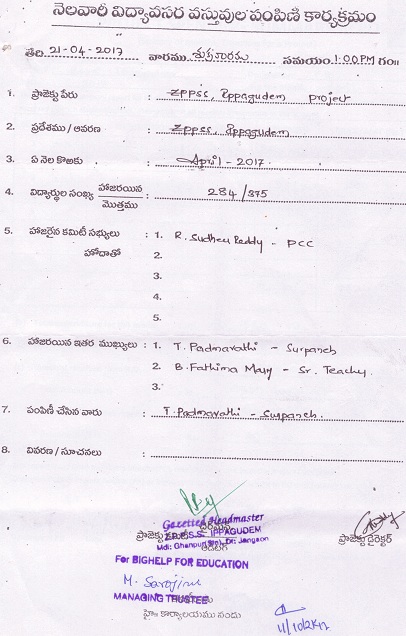 నెలవారీ విద్యావసర వస్తువుల పంపిణి కార్యక్రమం
తేది 21-04-2017 వారము శుక్రవారము సమయం 1:00 PM గం॥
1. ప్రాజెక్టు పేరు : ZPPSS, Ippagudem project
2. ప్రదేశము / ఆవరణ : ZPPSS, Ippagudem
3. ఏ నెల కొఱకు : April - 2017.
4. విద్యార్థుల సంఖ్య హాజరయిన / మొత్తము : 284/375
5. హాజరైన కమిటీ సభ్యులు : 1. R. Sudheer Reddy - PCC
హోదాతో 2.
3.
4.
5.
6. హాజరయిన ఇతర ముఖ్యులు : 1. T. Padmavathi - Surpanch
2. B. Fathima Mary - Sr. Teacher.
3.
7. పంపిణీ చేసిన వారు : T. Padmavathi - Surpanch.
8. వివరణ / సూచనలు :
Gazetted Headmaster
ప్రాజెక్టు
Z.P.S.S. IPPAGUDEM
Mdl: Ghanpur(Stn), Dt: Jangaon
ప్రాజెక్టు డైరెక్టర్
For BIGHELP FOR EDUCATION
M. Sarojini
MANAGING TRUSTEE
హై॥ కార్యాలయము నందు